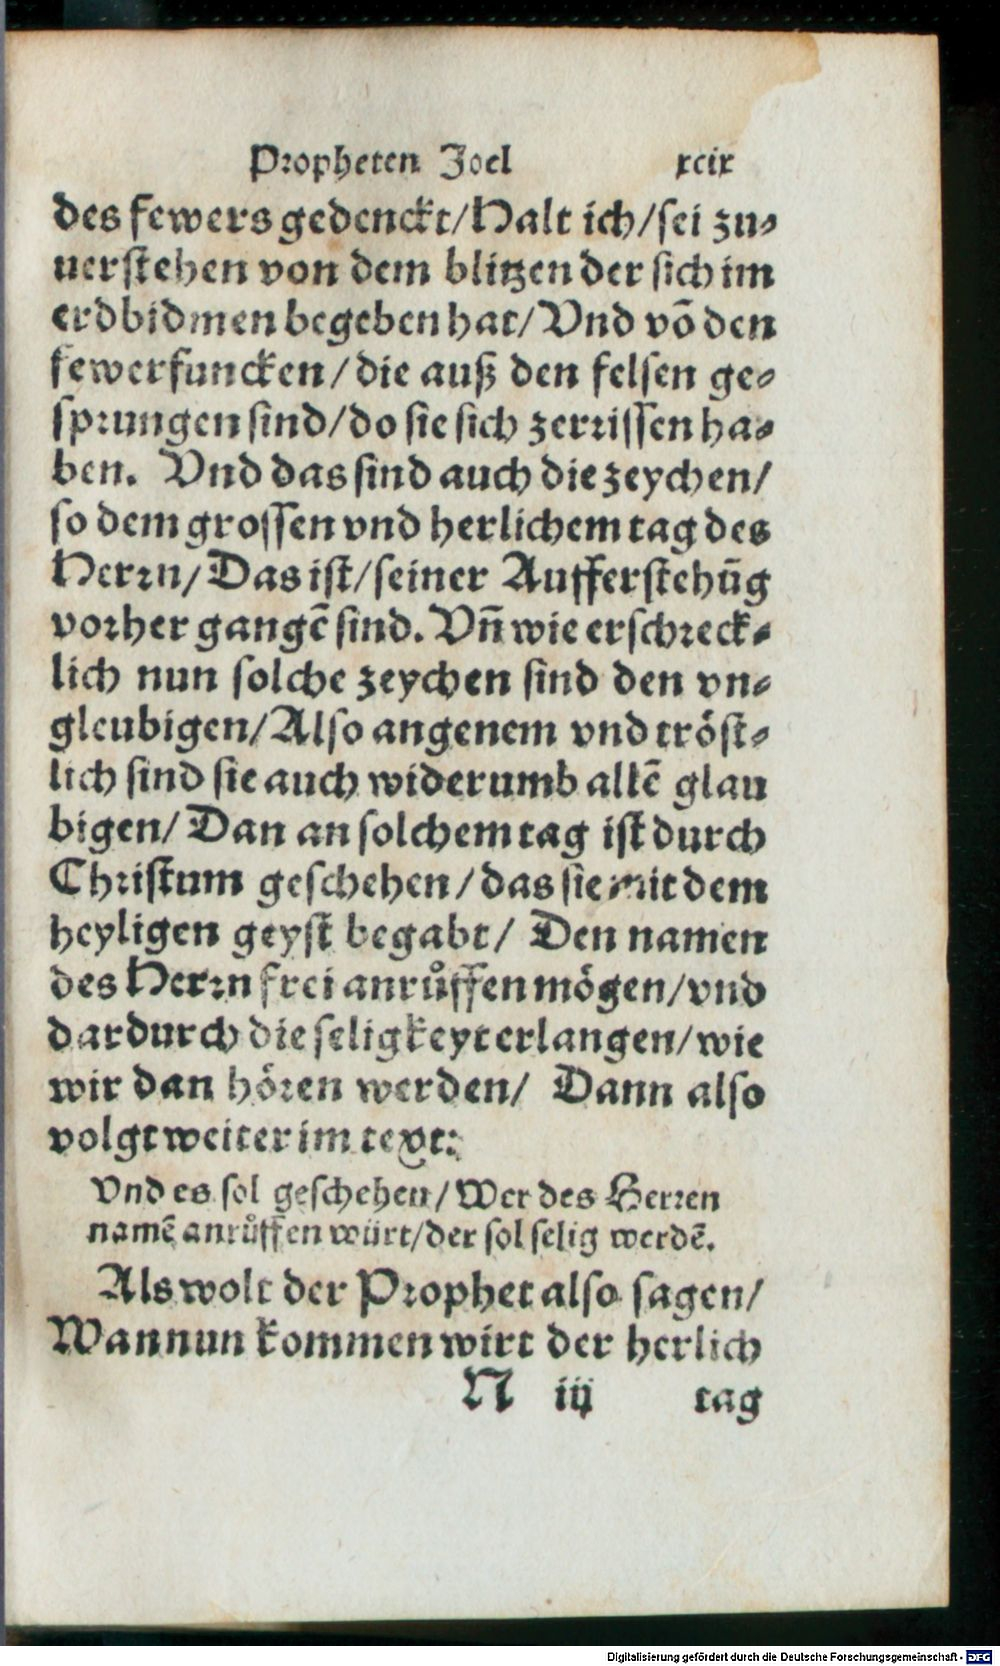 Propheten Joel xcix
des fewers gedenckt/Halt ich/sei zu-
uerstehen von dem blitzen der sich im
erdbidmen begeben hat/Vnd võ den
fewerfuncken/die auß den felsen ge-
sprungen sind/do sie sich zerrissen ha-
ben. Vnd das sind auch die zeychen/
so dem grossen vnd herlichem tag des
Herrn/Das ist/seiner Aufferstehũg
vorher gangẽ sind. Vñ wie erschreck-
lich nun solche zeychen sind den vn-
gleubigen/Also angenem vnd tröst-
lich sind sie auch widerumb allẽ glau
bigen/Dan an solchem tag ist durch
Christum geschehen/das sie mit dem
heyligen geyst begabt/Den namen
des Herrn frei anrůffen mögen/vnd
dardurch die seligkeyt erlangen/wie
wir dan hören werden/Dann also
volgt weiter im text:
Vnd es sol geschehen/Wer des Herren
namẽ anrůffen würt/der sol selig werdẽ.
Als wolt der Prophet also sagen/
Wannun kommen wirt der herlich
N iij tag
Digitalisierung gefördert durch die Deutsche Forschungsgemeinschaft - DFG